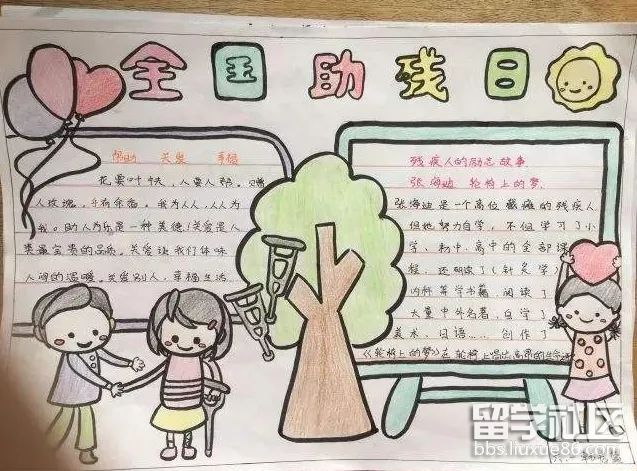 全国助残日
帮助 关爱 幸福
花要叶扶，人要人帮。赠
人玫瑰，手有余香。我为人人，人人为
我。助人为乐是一种美德！关爱是人
类最宝贵的品质。关爱让我们体味
人间的温暖。关爱别人，幸福生活
残疾人的励志故事
张海迪 轮椅上的梦
张海迪是一个高位截瘫的残疾人
但她努力自学，不但学习了小
学、初中、高中的全部课
程，还研读了《针灸学》
内科等学书籍，阅读了
大量中外名著，自学了
美术、日语……创作了
《轮椅上的梦》在轮椅上唱出高昂的生命
留学社区
bbs.liuxue86.com